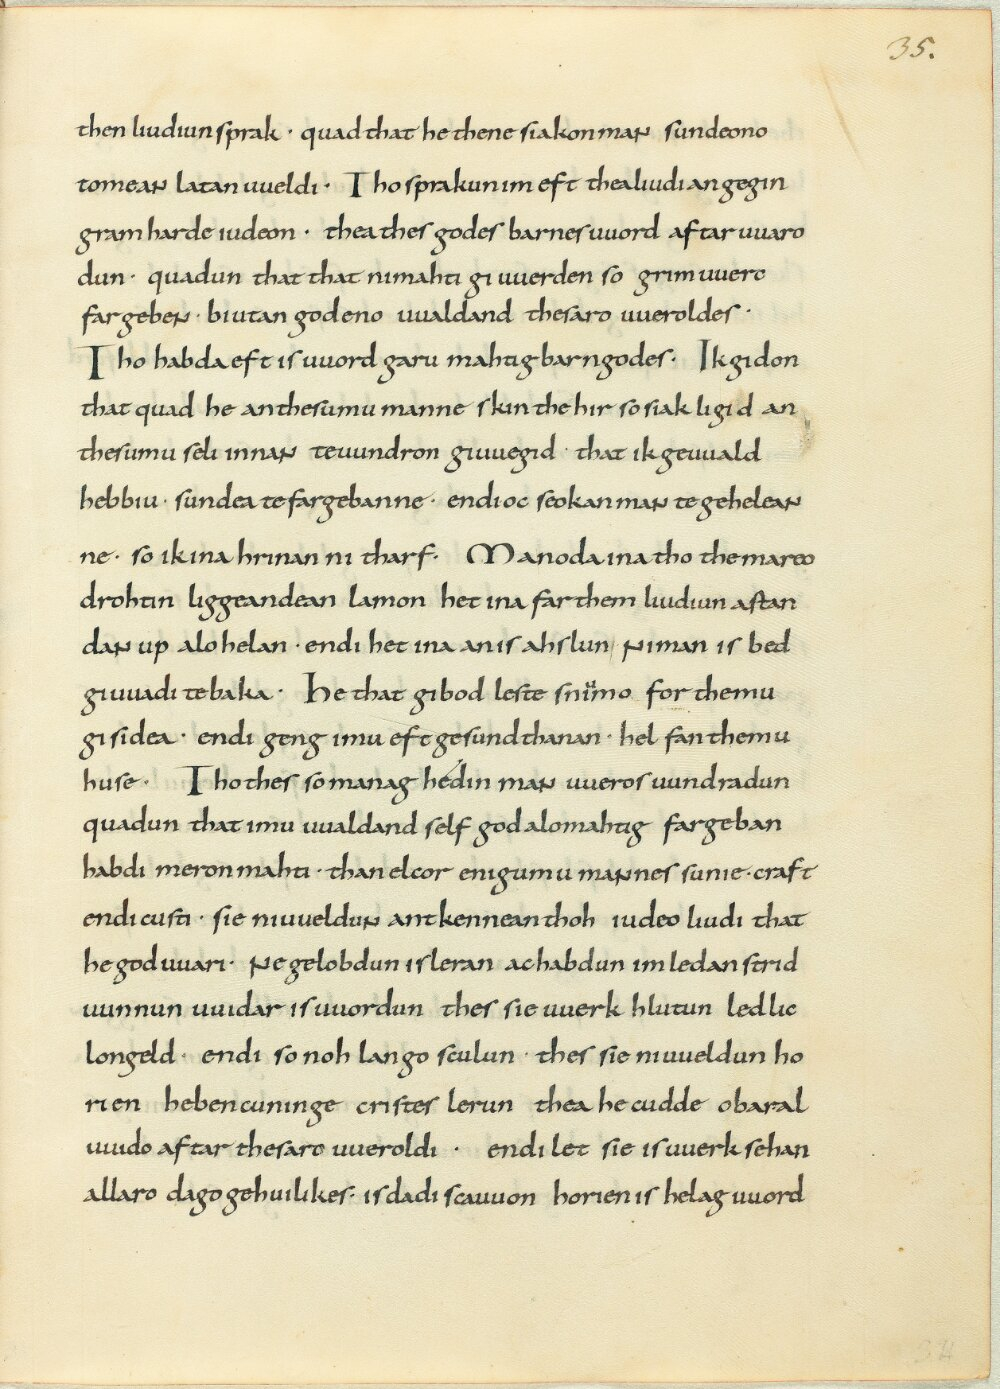 35.
then liudiun sprak · quad that he thene siakon man sundeono
tomean latan uueldi · Tho sprakun im eft thea liudi an gegin
gram harde iudeon · thea thes godes barnes uuord aftar uuaro
dun · quadun that that ni mahti gi uuerden so grim uuerc
fargeben · biutan god eno uualdand thesaro uueroldes ·
Tho habda eft is uuord garu mahtig barn godes · Ik gidon
that quad he an thesumu manne skin the hir so siak ligid an
thesumu seli innan te uundron giuuegid · that ik geuuald
hebbiu · sundea te fargebanne · endi oc seokan man te gehelean
ne · so ik ina hrinan ni tharf · Manoda ina tho the mareo
drohtin liggeandean lamon het ina far them liudiun astan
dan up alohelan · endi het ina an is ahslun niman is bed
giuuadi te baka · He that gibod leste sniumo for themu
gisidea · endi geng imu eft gesund thanan · hel fan themu
huse · Tho thes so manag hédin man uueros uundradun
quadun that imu uualdand self god alomahtig fargeban
habdi meron mahti · than elcor enigumu mannes sunie · craft
endi custi · sie ni uueldun antkennean thoh iudeo liudi that
he god uuari · ne gelobdun is leran ac habdun im ledan strid
uunnun uuidar is uuordun thes sie uuerk hlutun ledlic
longeld · endi so noh lango sculun · thes sie ni uueldun ho
rien hebencuninge cristes lerun thea he cudde obar al
uuido aftar thesaro uueroldi · endi let sie is uuerk sehan
allaro dago gehuilikes · is dadi scauuon horien is helag uuord
34